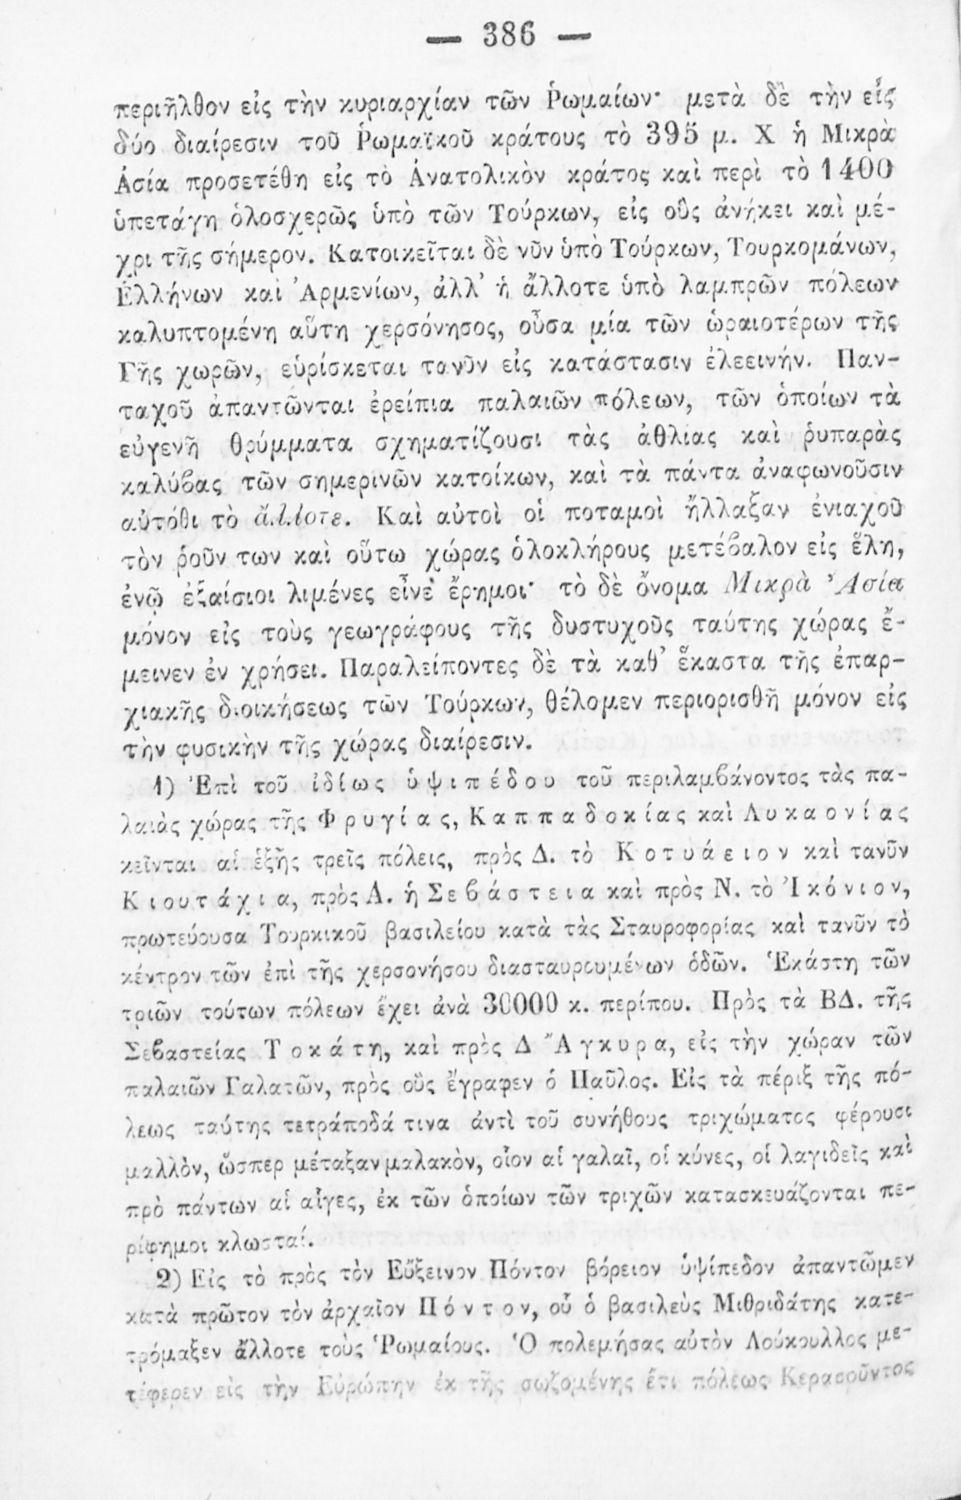 — 386 —
περιῆλθον εἰς τὴν κυριαρχίαν τῶν Ῥωμαίων· μετὰ δὲ τὴν εἰς
δύο διαίρεσιν τοῦ Ῥωμαϊκοῦ κράτους τὸ 395 μ. Χ ἡ Μικρὰ
Ἀσία προσετέθη εἰς τὸ Ἀνατολικὸν κράτος καὶ περὶ τὸ 1400
ὑπετάγη ὁλοσχερῶς ὑπὸ τῶν Τούρκων, εἰς οὓς ἀνήκει καὶ μέ-
χρι τῆς σήμερον. Κατοικεῖται δὲ νῦν ὑπὸ Τούρκων, Τουρκομάνων,
Ἑλλήνων καὶ Ἀρμενίων, ἀλλ' ἡ ἄλλοτε ὑπὸ λαμπρῶν πόλεων
καλυπτομένη αὕτη χερσόνησος, οὖσα μία τῶν ὡραιοτέρων τῆς
Γῆς χωρῶν, εὑρίσκεται τανῦν εἰς κατάστασιν ἐλεεινήν. Παν-
ταχοῦ ἀπαντῶνται ἐρείπια παλαιῶν πόλεων, τῶν ὁποίων τὰ
εὐγενῆ θρύμματα σχηματίζουσι τὰς ἀθλίας καὶ ῥυπαρὰς
καλύβας τῶν σημερινῶν κατοίκων, καὶ τὰ πάντα ἀναφωνοῦσιν
αὐτόθι τὸ ἄλλοτε. Καὶ αὐτοὶ οἱ ποταμοὶ ἤλλαξαν ἐνιαχοῦ
τὸν ῥοῦν των καὶ οὕτω χώρας ὁλοκλήρους μετέβαλον εἰς ἕλη,
ἐνῷ ἐξαίσιοι λιμένες εἶνε ἔρημοι· τὸ δὲ ὄνομα Μικρὰ Ἀσία
μόνον εἰς τοὺς γεωγράφους τῆς δυστυχοῦς ταύτης χώρας ἔ-
μεινεν ἐν χρήσει. Παραλείποντες δὲ τὰ καθ' ἕκαστα τῆς ἐπαρ-
χιακῆς διοικήσεως τῶν Τούρκων, θέλομεν περιορισθῆ μόνον εἰς
τὴν φυσικὴν τῆς χώρας διαίρεσιν.
1) Ἐπὶ τοῦ ἰδίως ὑψιπέδου τοῦ περιλαμβάνοντος τὰς πα-
λαιὰς χώρας τῆς Φρυγίας, Καππαδοκίας καὶ Λυκαονίας
κεῖνται αἱ ἑξῆς τρεῖς πόλεις, πρὸς Δ. τὸ Κοτυάειον καὶ τανῦν
Κιουτάχια, πρὸς Α. ἡ Σεβάστεια καὶ πρὸς Ν. τὸ Ἰκόνιον,
πρωτεύουσα Τουρκικοῦ βασιλείου κατὰ τὰς Σταυροφορίας καὶ τανῦν τὸ
κέντρον τῶν ἐπὶ τῆς χερσονήσου διασταυρουμένων ὁδῶν. Ἑκάστη τῶν
τριῶν τούτων πόλεων ἔχει ἀνὰ 30000 κ. περίπου. Πρὸς τὰ ΒΔ. τῆς
Σεβαστείας Τοκάτη, καὶ πρὸς Δ Ἄγκυρα, εἰς τὴν χώραν τῶν
παλαιῶν Γαλατῶν, πρὸς οὓς ἔγραφεν ὁ Παῦλος. Εἰς τὰ πέριξ τῆς πό-
λεως ταύτης τετράποδά τινα ἀντὶ τοῦ συνήθους τριχώματος φέρουσι
μαλλὸν, ὥσπερ μέταξαν μαλακὸν, οἷον αἱ γαλαῖ, οἱ κύνες, οἱ λαγιδεῖς καὶ
πρὸ πάντων αἱ αἶγες, ἐκ τῶν ὁποίων τῶν τριχῶν κατασκευάζονται πε-
ρίφημοι κλωσταί.
2) Εἰς τὸ πρὸς τὸν Εὔξεινον Πόντον βόρειον ὑψίπεδον ἀπαντῶμεν
κατὰ πρῶτον τὸν ἀρχαῖον Πόντον, οὗ ὁ βασιλεὺς Μιθριδάτης κατε-
τρόμαξεν ἄλλοτε τοὺς Ῥωμαίους. Ὁ πολεμήσας αὐτὸν Λούκουλλος με-
τέφερεν εἰς τὴν Εὐρώπην ἐκ τῆς σωζομένης ἔτι πόλεως Κερασοῦντος